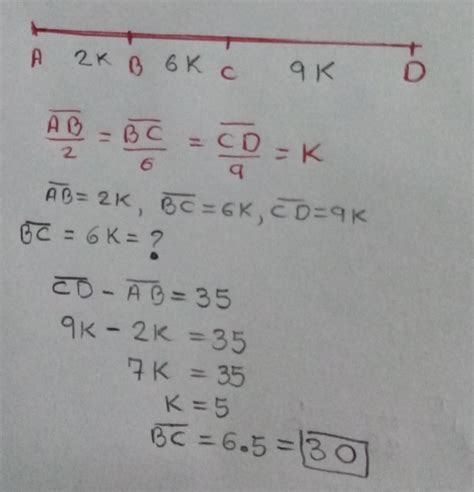 A 2K B 6K C 9K D
AB/2 = BC/6 = CD/9 = K
AB = 2K, BC = 6K, CD = 9K
BC = 6K = ?
CD - AB = 35
9K - 2K = 35
7K = 35
K = 5
BC = 6.5 = 30